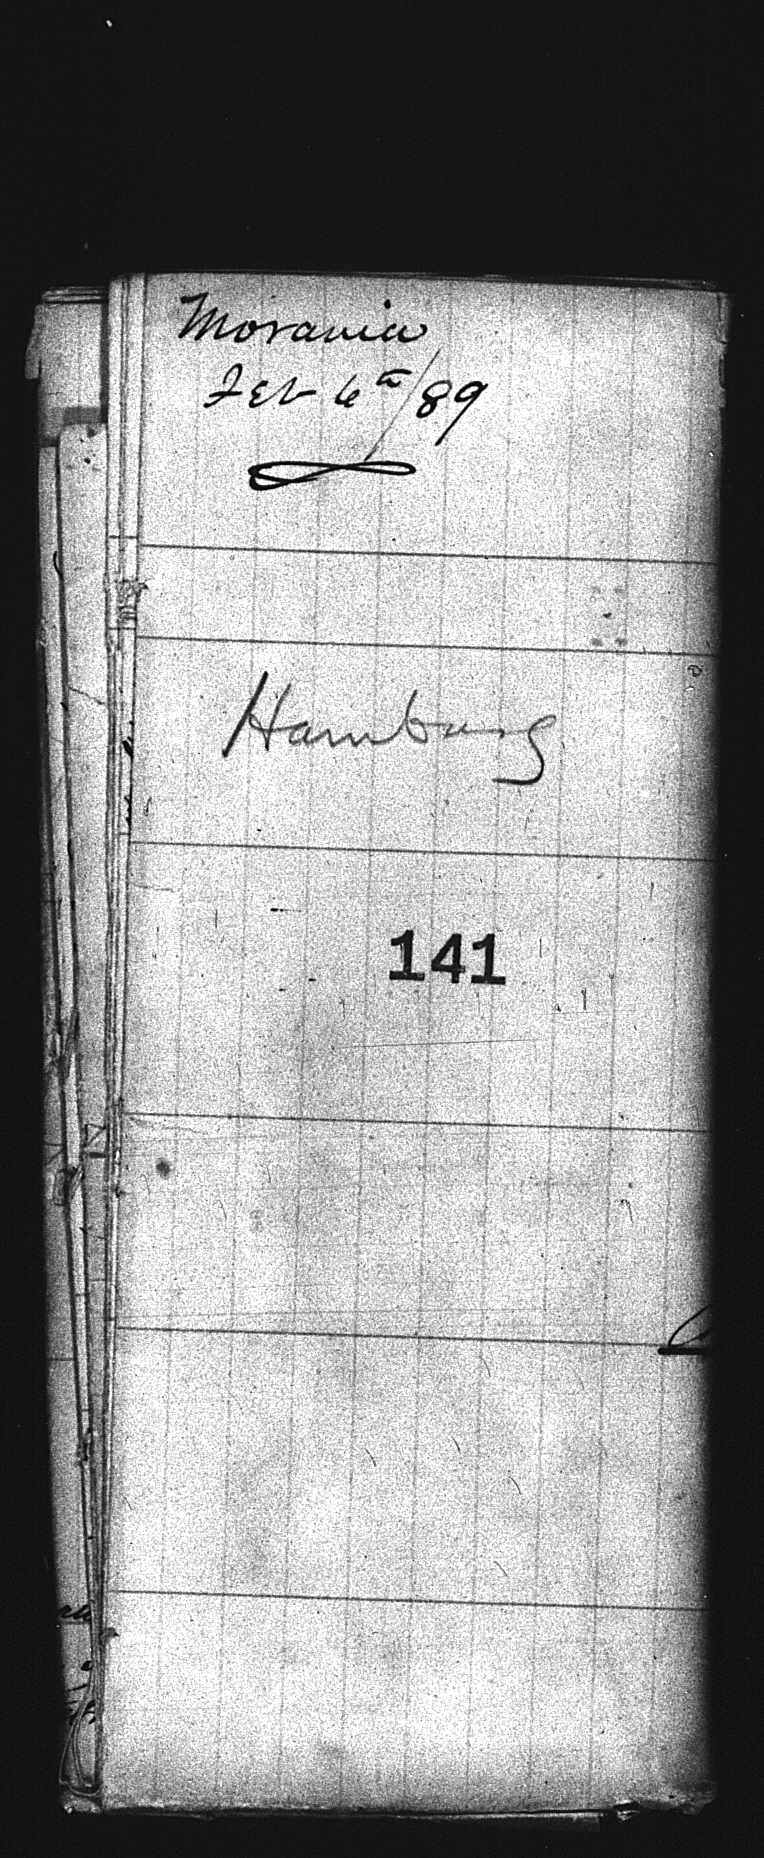 Moravia
Feb 6th/89
Hamburg
141